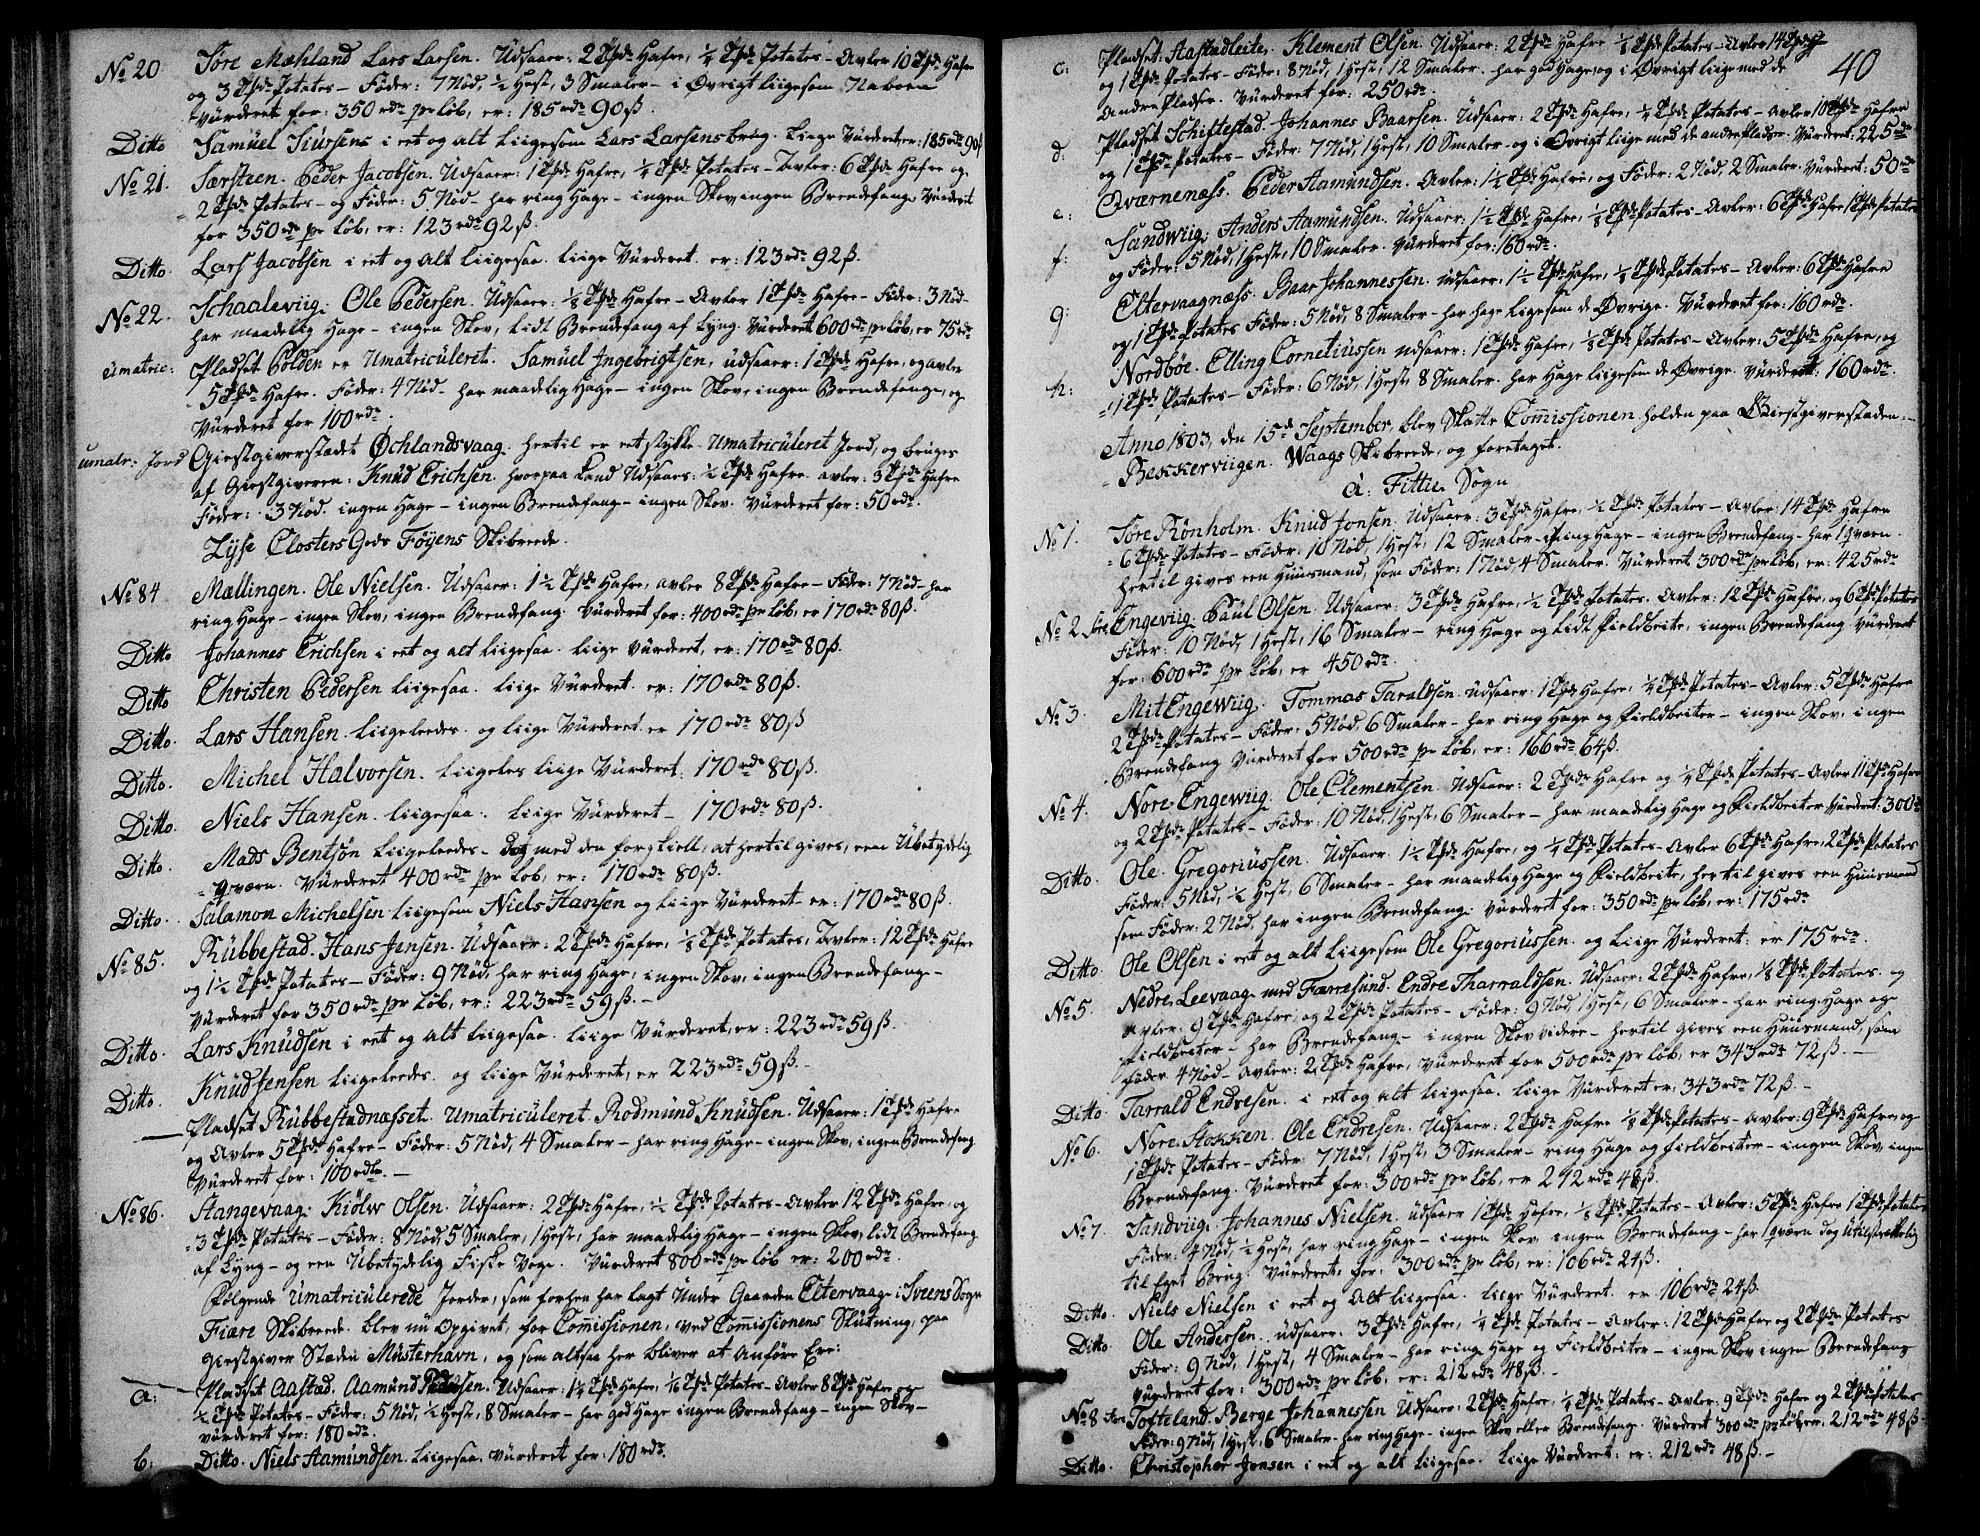 No 20 Søre Mæhland Lars Larsen. Udsaaer: 2 Tønde Hafre, ¼ Tønde Potates – Avler 10 Tønde Hafre
og 3 Tønde Potates – Føder: 7 Nød, ½ Hest, 3 Smaler – i Øvrigt liigesom Naboen
Vurderet for: 350 rdr pr Løb, er: 185 rdr 90 ß.
Ditto Samuel Siursens i eet og alt liigesom Lars Larsens brug. Liige Vurderet er: 185 rdr 90 ß
No 21. Særsteen. Peder Jacobsen. Udsaaer: 1 Tønde Hafre, ¼ Tønde Potates – Avler: 6 Tønde Hafre og
2 Tønde Potates – og Føder: 5 Nød – har ring Hage – ingen Skov, ingen Brendefang. Vurderet
for 350 rdr pr Løb, er: 123 rdr 92 ß.
Ditto. Lars Jacobsen i eet og alt liigesaa. liige Vurderet. er: 123 rdr 92 ß.
No 22. Schaaleviig. Ole Pedersen. Udsaaer: ⅛ Tønde Hafre – Avler 1 Tønde Hafre – Føder: 3 Nød –
har maadelig Hage – ingen Skov, lidt Brendefang af Lyng. Vurderet 600 rdr pr Løb, er 75 rdr
umatric: Pladset Polden er Umatriculeret. Samuel Ingebrigtsen, udsaaer: 1 Tønde Hafre, og avler
5 Tønde Hafre. Føder: 4 Nød – har maadelig Hage – ingen Skov, ingen Brendefange, og
Vurderet for 100 rdr.
umatr: Jord Giestgiverstædet Øchlandsvaag. hertil er eet stykke Umatriculeret Jord, og bruges
af Giestgiveren: Knud Erichsen. hvorpaa Land Udsaaes: ½ Tønde Hafre. avler: 3 Tønde Hafre
Føder: 3 Nød. ingen Hage – ingen Brendefang – ingen Skov. Vurderet for: 50 rdr.
Lyse Closters Gods Føyens Skibreede.
No 84 Mællingen. Ole Nielsen. Udsaaer: 1½ Tønde Hafre, avler 8 Tønde Hafre – Føder: 7 Nød – har
ring Hage – ingen Skov, ingen Brendefang. Vurderet for: 400 rdr pr Løb, er 170 rdr 80 ß.
Ditto Johannes Erichsen i eet og alt liigesaa. liige Vurderet, er: 170 rdr 80 ß.
Ditto Christen Pedersen liigesaa. liige Vurderet. er: 170 rdr 80 ß.
Ditto. Lars Hansen. liigeleedes. og liige Vurderet er 170 rdr 80 ß
Ditto. Michel Halvorsen. liigeles liige Vurderet: 170 rdr 80 ß.
Ditto. Niels Hansen. liigesaa. liige Vurderet – 170 rdr 80 ß.
Ditto. Mads Bentsøn liigeleedes – dog med den forskiell, at hertil gives, een Ubetydelig
qværn. Vurderet 400 rdr pr Løb, er: 170 rdr 80 ß.
Ditto. Salamon Michelsen liigesom Niels Hansen og liige Vurderet er: 170 rdr 80 ß.
No 85. Rubbestad. Hans Jensen. Udsaaer: 2 Tønde Hafre, ⅛ Tønde Potates, Avler: 12 Tønde Hafre
og 1½ Tønde Potates – Føder: 9 Nød, har ring Hage, ingen Skov, ingen Brendefang –
Vurderet for 350 rdr pr Løb, er: 223 rdr 59 ß. –
Ditto. Lars Knudsen i eet og alt liigesaa. liige Vurderet, er: 223 rdr 59 ß.
Ditto. Knud Jensen liigeleedes. og liige Vurderet, er 223 rdr 59 ß. –
Pladset Rubbestadnæsset. Umatriculeret. Rodmund Knudsen. Udsaaer: 1 Tønde Hafre
og Avler 5 Tønde Hafre – Føder: 5 Nød, 4 Smaler – har ring Hage – ingen Skov, ingen Brendefang
Vurderet for: 100 rdlr. –
No 86. Stangevaag. Kiølv Olsen. Udsaaer: 2 Tønde Hafre, ½ Tønde Potates – Avler 12 Tønde Hafre, og
3 Tønde Potates – Føder: 8 Nød, 5 Smaler, 1 Hest, har maadelig Hage – ingen Skov, lidt Brendefang
af Lyng – og een Ubetydelig Fiske Voge. Vurderet 800 rdr pr Løb er: 200 rdr.
Følgende Umatriculerede Jorder, som forhen har lagt Under Gaarden Eltervaag i Sveens Sogn
Fiære Skibreede. blev nu Opgivet, for Commissionen, ved Commissionens Slutning, paa
Giestgiver Stæden Musterhavn, og som altsaa her bliver at Anføre Ere:
a: Pladset Aastad. Aamund Pedersen. Udsaaer: 1½ Tønde Hafre, ⅛ Tønde Potates – Avler 8 Tønde Hafre og
½ Tønde Potates – Føder: 5 Nød, ½ Hest, 8 Smaler – har god Hage ingen Brendefang – ingen Skov –
vurderet for: 180 rdr.
b: Ditto. Niels Aamundsen. liigesaa. Vurderet for: 180 rdr.
40
c: Pladset Aastadleite. Klement Olsen. Udsaaer: 2 Tønde Hafre ⅛ Tønde Potates – Avler 14 Tønde Hafre
og 1 Tønde Potates – Føder: 8 Nød, 1 Hest, 12 Smaler. har god Hage, og i Øvrigt liige med de
Andre Pladser. Vurderet for: 250 rdr.
d: Pladset Schiftestad. Johannes Baarsen. Udsaaer: 2 Tønde Hafre, ¼ Tønde Potates – Avler 10 Tønde Hafre
og 1 Tønde Potates – Føder: 7 Nød, 1 Hest, 10 Smaler – og i Øvrigt liige med de andre Pladser. Vurderet: 225 rdr
e: Qværnenæss. Peder Aamundsen. Avler: 1½ Tønde Hafre, og Føder: 2 Nød, 2 Smaler. Vurderet: 50 rdr
f: Sandwiig. Anders Aamundsen. Udsaaer: 1½ Tønde Hafre, ⅛ Tønde Potates – Avler: 6 Tønde Hafre 1 Tønde Potates
og Føder: 5 Nød, 1 Hest, 10 Smaler. Vurderet for: 160 rdr.
g: Eltervaagnæss. Baar Johannessen. udsaaer: 1½ Tønde Hafre, ⅛ Tønde Potates – Avler: 6 Tønde Hafre
og 1 Tønde Potates Føder: 5 Nød, 8 Smaler – har hage ligesom de Øvrige. Vurderet for: 160 rdr.
h: Nordbøe. Elling Corneliussen udsaaer: 1 Tønde Hafre, ⅛ Tønde Potates – Avler: 5 Tønde Hafre, og
1 Tønde Potates – Føder: 6 Nød, 1 Hest, 8 Smaler. har Hage liigesom de Øvrige. Vurderet: 160 rdr.
Anno 1803, den 15de September, blev Skatte Commissionen. holden paa Giestgiverstaden:
Bekkerviigen. Waags Skibreede, og foretaget.
a: Fittie Sogn
No 1. Søre Rönholm. Knud Jonsen. Udsaaer: 3 Tønde Hafre, ½ Tønde Potates – Avler: 14 Tønde Hafre
6 Tønde Potates – Føder: 10 Nød, 1 Hest, 12 Smaler – Ring Hage – ingen Brendefang – har 1 qværn.
hertil gives een Huusmand, som Føder: 1 Nød 4 Smaler. Vurderet 300 rdr pr Løb, er: 425 rdr
No 2 Søre Engeviig. Paul Olsen. Udsaaer: 3 Tønde Hafre, ½ Tønde Potates. Avler: 12 Tønde Hafre, og 6 Tønde Potates
Føder: 10 Nød, 1 Hest, 16 Smaler – ring Hage og lidt Fieldbeite, ingen Brendefang Vurderet
for: 600 rdr pr Løb, er 450 rdr.
No 3. Mit Engewiig. Tommas Taraldsen. udsaaer: 1 Tønde Hafre, ¼ Tønde Potates – Avler: 5 Tønde Hafre
2 Tønde Potates – Føder: 5 Nød 6 Smaler – har ring Hage og Fieldbeiter – ingen Skov, ingen
Brendefang Vurderet for 500 rdr pr Løb, er: 166 rdr 64 ß.
No 4. Nore Engewiig. Ole Clementsen. Udsaaer: 2 Tønde Hafre og ¼ Tønde Potates – Avler 11 Tønde Hafre
og 2 Tønde Potates – Føder: 10 Nød, 1 Hest, 6 Smaler – har maadelig Hage og Fieldbeiter Vurderet: 300 rdr
Ditto. Ole Gregoriussen. Udsaaer 1½ Tønde Hafre, og ¼ Tønde Potates – Avler 6 Tønde Hafre, 2 Tønde Potates
Føder: 5 Nød, ½ Hest, 6 Smaler – har maadelig Hage og Fieldbeite, hertil gives een Huusmand
som Føder: 2 Nød, har ingen Brendefang. Vurderet for: 350 rdr pr Løb, er: 175 rdr
Ditto. Ole Olsen i eet og alt liigesom Ole Gregoriussen. og liige Vurderet: er 175 rdr.
No 5. Nedre Leevaag med Færresund. Endre Tharraldsen. Udsaaer: 2 Tønde Hafre, ⅛ Tønde Potates. og
avler: 9 Tønde Hafre, og 2 Tønde Potates – Føder: 9 Nød, 1 Hest, 6 Smaler – har ring Hage og
Fieldbeiter – har Brendefang – ingen Skov videre – hertil gives een Huusmand, som
føder 4 Nød – Avler: 2 Tønde Hafre, Vurderet for 500 rdr pr Løb, er 343 rdr 72 ß. –
Ditto. Tarrald Endresen. i eet og alt liigesaa. liige Vurderet er: 343 rdr 72 ß. –
No 6. Nore Stokken. Ole Endresen. Udsaaer: 2 Tønde Hafre ⅛ Tønde Potates – Avler: 9 Tønde Hafre, og
1 Tønde Potates – Føder: 7 Nød, 1 Hest, 3 Smaler – ring Hage og Fieldbeiter – ingen Skov, ingen
Brendefang. Vurderet for: 300 rdr pr Løb, er 212 rdr 48 ß.
No 7. Sandviig. Johannes Nielsen. udsaaer 1 Tønde Hafre, ⅛ Tønde Potates – Avler: 5 Tønde Hafre 1 Tønde Potates
Føder: 4 Nød, ½ Hest, har ring Hage – ingen Skov ingen Brendefang – har 1 qværn dog Utilstrækkelig
til Eget Brug. Vurderet, for: 300 rdr pr Løb, er: 106 rdr 24 ß.
Ditto. Niels Nielsen i eet og Alt liigesaa. liige Vurderet. er 106 rdr 24 ß.
Ditto. Ole Andersen. udsaaer. 3 Tønde Hafre, ¼ Tønde Potates – Avler: 12 Tønde Hafre og 2 Tønde Potates
Føder: 9 Nød, 1 Hest, 4 Smaler – har ring Hage og Fieldbeiter – ingen Skov ingen Brendefang
Vurderet for: 300 rdr pr Løb, er: 212 rdr 48 ß. –
No 8 Søre Tofteland. Berge Johannessen Udsaaer: 2 Tønde Hafre, ¼ Tønde Potates – Avler: 9 Tønde Hafre og 2 Tønde Potates
Føder: 9 Nød, 1 Hest, 6 Smaler – har ring Hage – ingen Skov eller Brendefang. Vurderet 300 rdr pr Løb er: 212 rdr 48 ß.
Ditto. Christopher Jonsen i eet og alt liigesaa. liige Vurderet: er: 212 rdr 48 ß. –